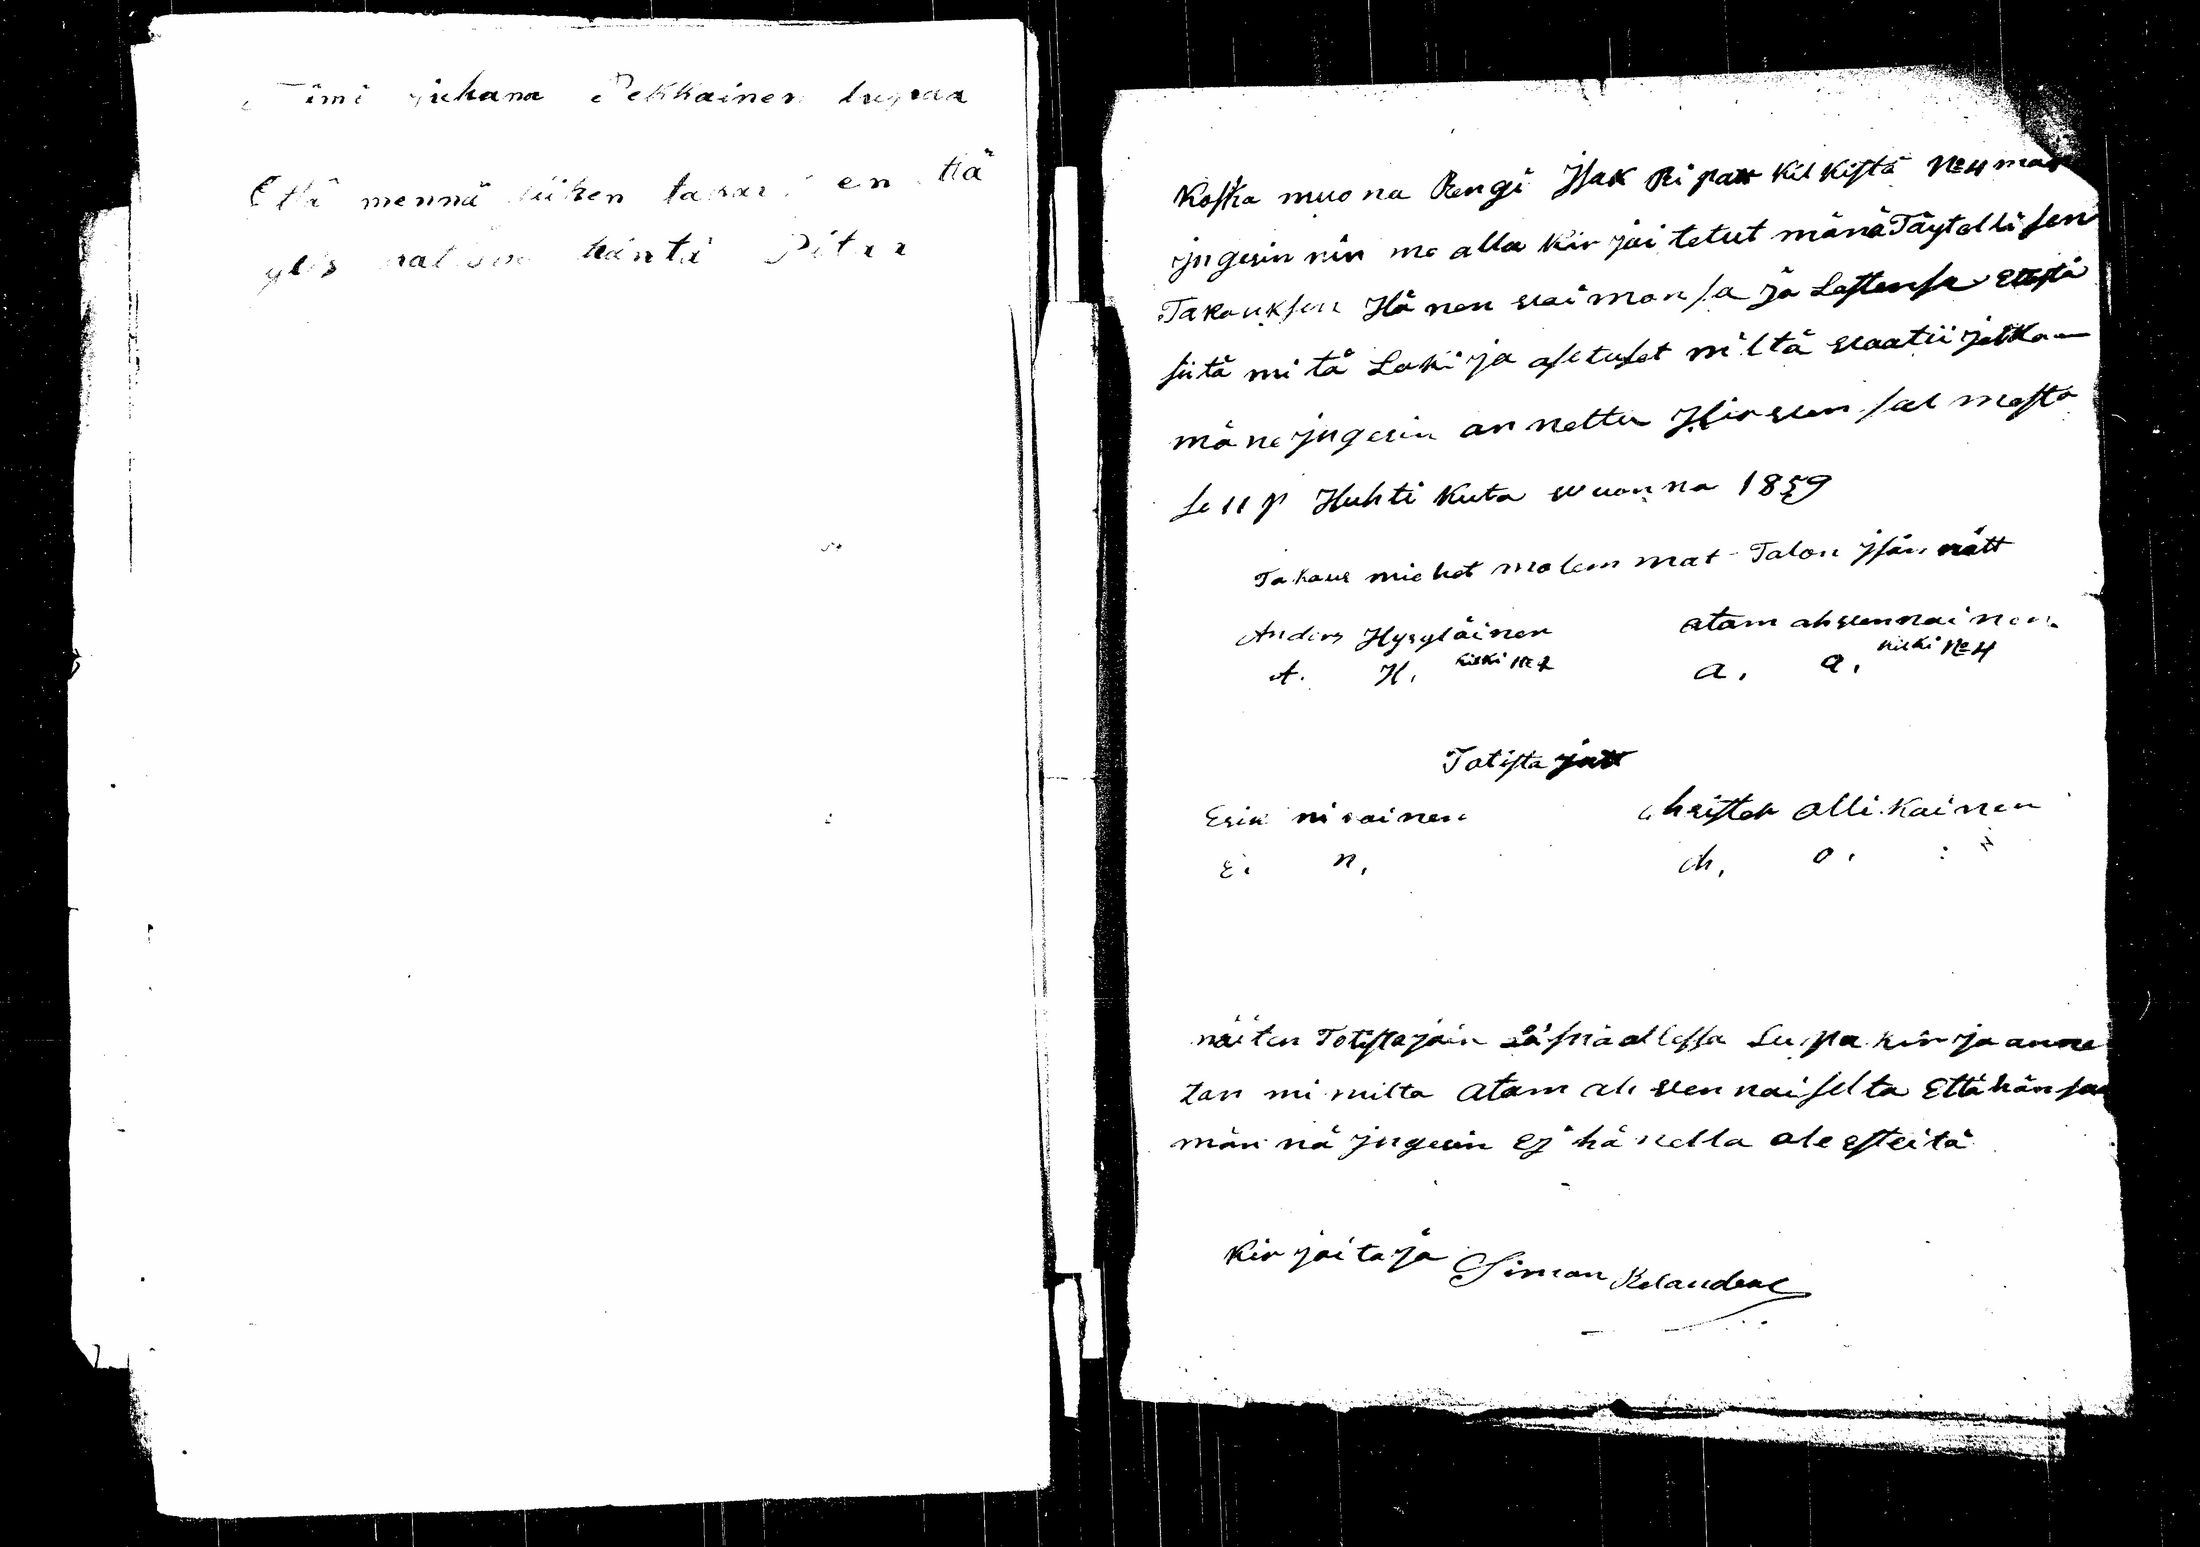 imi juhana Pekkainen lupaa
Että mennä en tiä
häntä Pitää
Koska muona Rengi Isak Ripatt Kilkistä No 4 män
jngerin nin me alla kirjoitetut mänä Täytellisen
Takauksen Hänen waimonsa ja Lastensa Etestä
siitä mitä Laki ja asetuset niiltä waatii jotka
mäne jngerin annettu Hirwensalmesta
se 11 p Huhti Kuta wuonna 1859
Takaus miehet molemmat Talon Isännätt
Anders Hyyryläinen atam ahwennainen
A. H. kilki No 2 a. a. kilki No 4
Totistajatt
Erik niroinen christer ollikainen
E. n. ch. o.
näiten Totistajain Läsnä ollessa Lupa kirja anne
tan mimilta atam ahwennaiselta Että hän saa
männä jngerin Ej hänella ole esteitä
Kirjoitaja Siman Relander